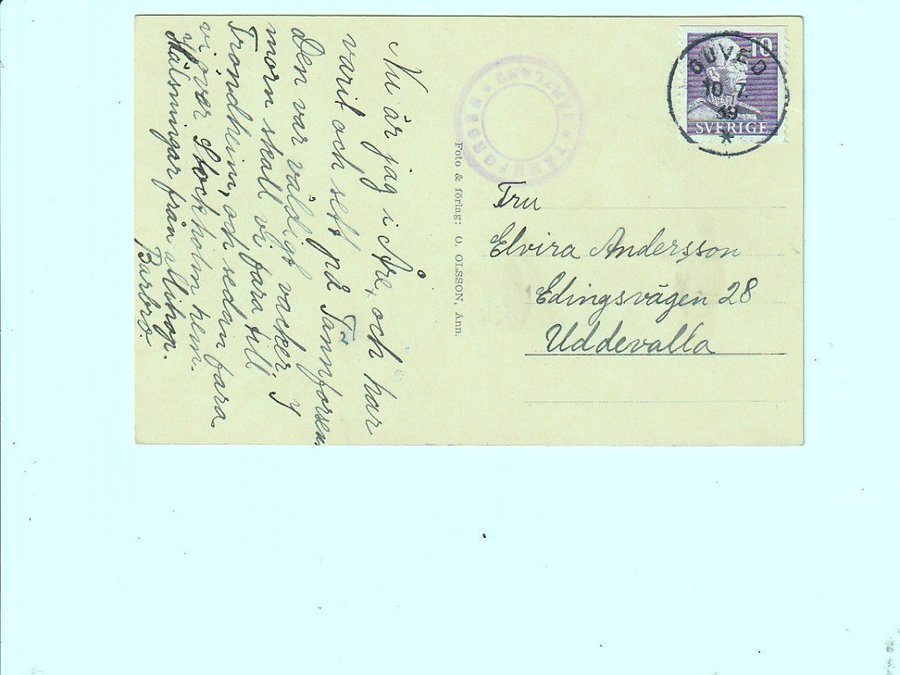 Nu är jag i Åre, och har
varit och sett på Tännforsen
Den var väldigt vacker. I
morn skall vi fara till
Trondheim, och sedan fara
vi över Stockholm hem.
Hälsningar från allihop.
Barbro.
TÄNNFORSEN * JÄMTLAND *
Foto & förlag: O. OLSSON, Ånn.
10
SVERIGE
DUVED
10. 7.
39
Fru
Elvira Andersson
Edingsvägen 28
Uddevalla